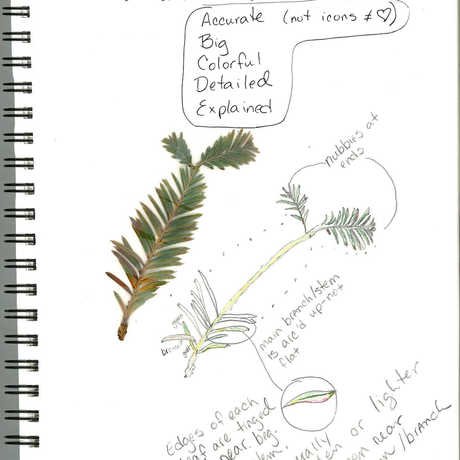 Accurate (not icons ≠ ♡)
Big
Colorful
Detailed
Explained
nubbies at
ends
main branch/stem
is arc'd up-not
flat
Edges of each
leaf are tinged
near big
stem.
or lighter
near
/branch